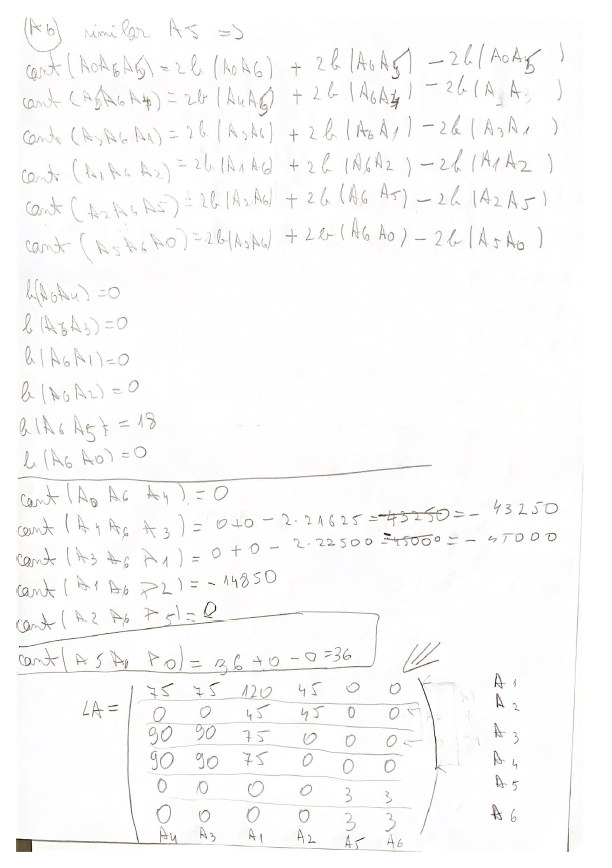 (A6) similar A5 =>
cant (A0A6A5) = 2b (A0A6) + 2b (A6A5) - 2b (A0A5)
cant (A5A6A4) = 2b (A4A5) + 2b (A6A4) - 2b (A A )
cant (A3A6A1) = 2b (A3A6) + 2b (A6A1) - 2b (A3A1)
cant (A1A6A2) = 2b (A1A6) + 2b (A6A2) - 2b (A1A2)
cant (A2A6A5) = 2b (A2A6) + 2b (A6A5) - 2b (A2A5)
cant (A5A6A0) = 2b (A5A6) + 2b (A6A0) - 2b (A5A0)
b(A6A4) = 0
b(A6A3) = 0
b(A6A1) = 0
b(A6A2) = 0
b(A6A5) = 18
b(A6A0) = 0
cant (A0 A6 A4) = 0
cant (A4 A6 A3) = 0+0 - 2.21625 = 43250 = - 43250
cant (A3 A6 A1) = 0+0 - 2.22500 = 45000 = - 45000
cant (A1 A6 A2) = - 14850
cant (A2 A6 A5) = 0
cant (A5 A6 A0) = 36 + 0 - 0 = 36
75 75 120 45 0 0 A1
LA = 0 0 45 45 0 0 A2
90 90 75 0 0 0 A3
90 90 75 0 0 0 A4
0 0 0 0 3 3 A5
0 0 0 0 3 3 A6
A4 A3 A1 A2 A5 A6